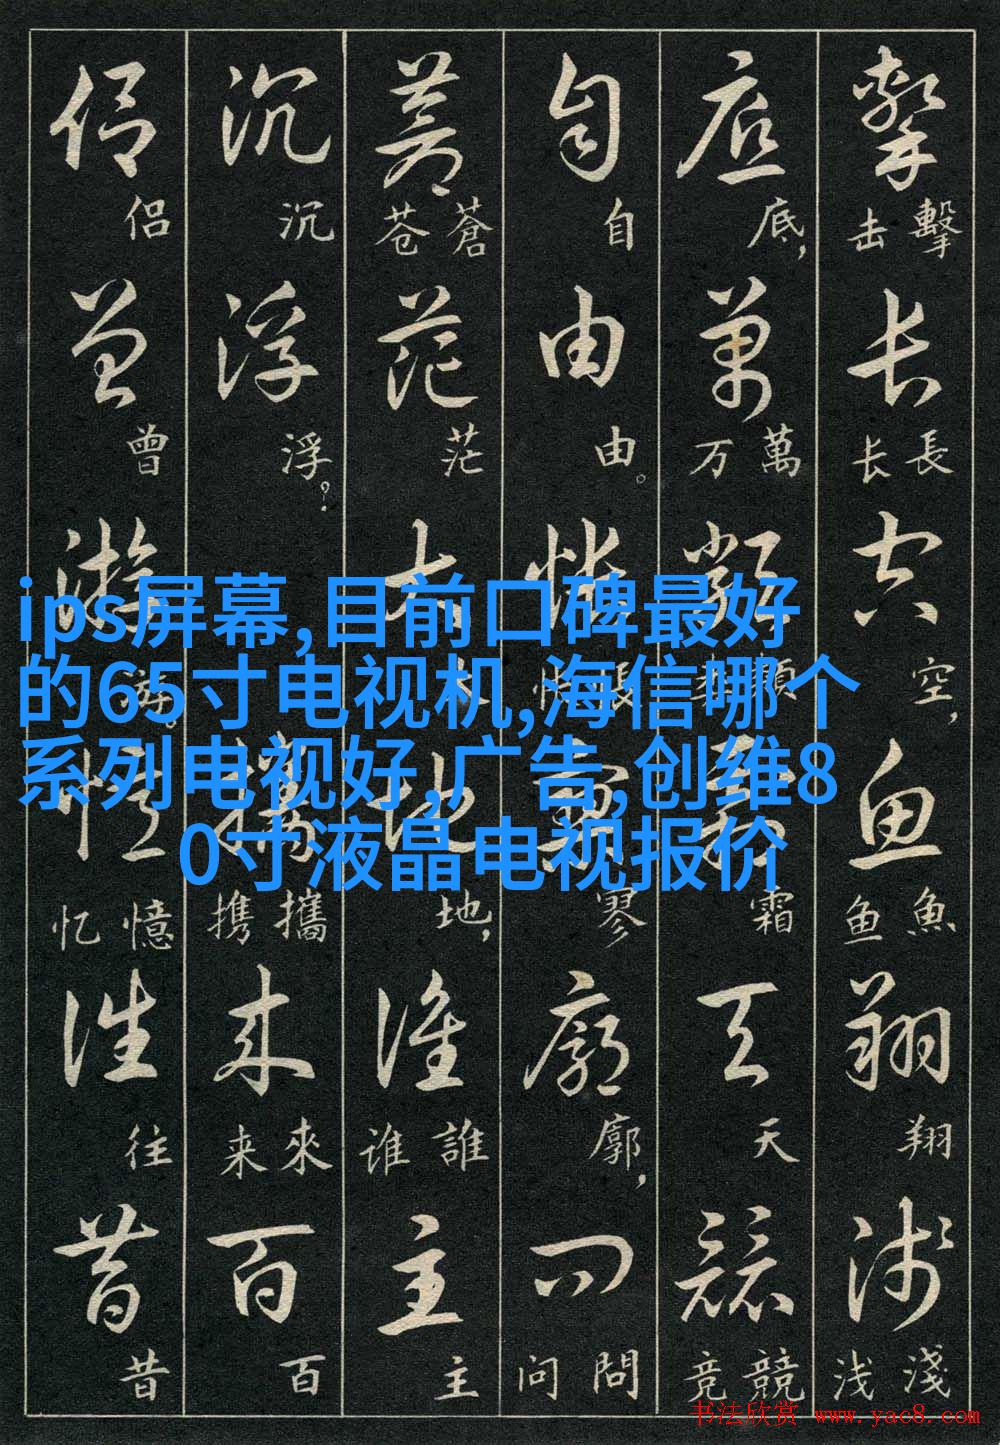 擊长空鱼翔浅
擊击 長长 空， 魚鱼 翔 淺浅
底万類霜天竞
底， 萬万 類类 霜 天 競竞
自由怅寥廓问
自 由。 悵怅 寥 廓， 問问
苍茫大地谁主
蒼苍 茫 大 地， 誰谁 主
沉浮携来百
沉 浮？ 攜携 來来 百
侣曾游忆往昔
侣 曾 游。 憶忆 往 昔
ips屏幕,目前口碑最好
的65寸电视机,海信哪个
系列电视好,广告,创维8
0寸液晶电视报价
书法欣赏 www.yac8.com